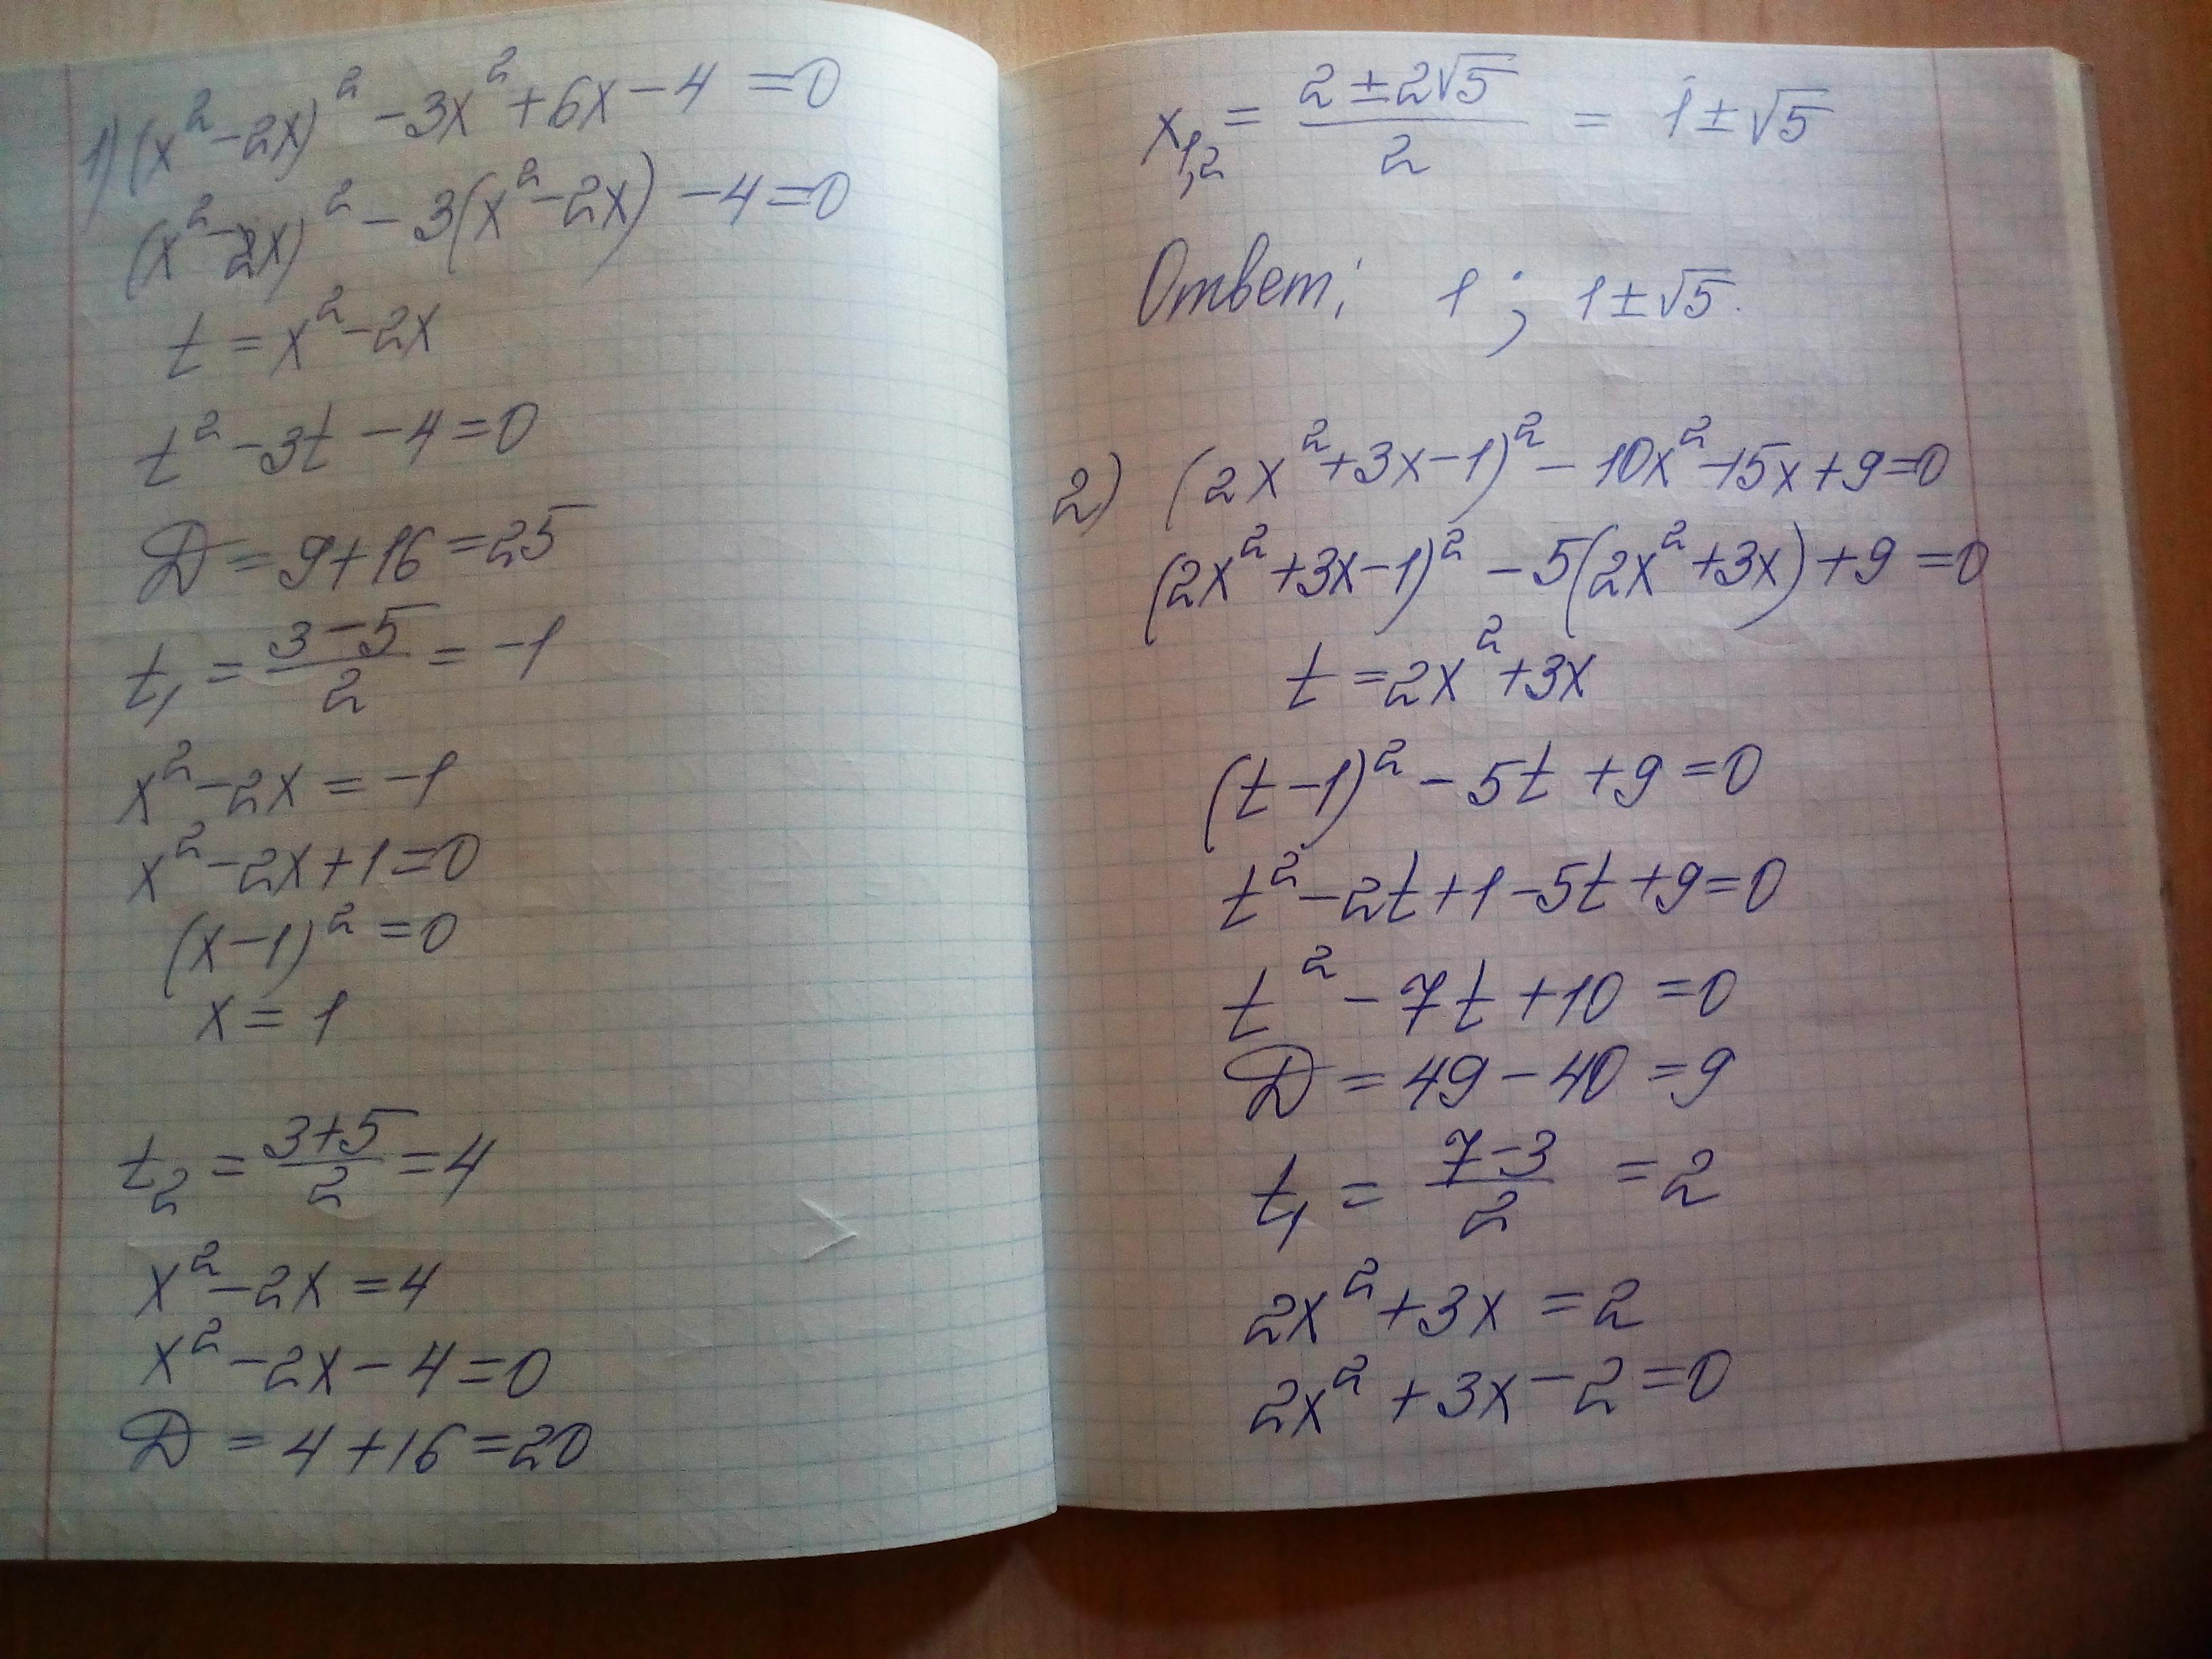 1) (x² - 2x)² - 3x² + 6x - 4 = 0
(x² - 2x)² - 3(x² - 2x) - 4 = 0
t = x² - 2x
t² - 3t - 4 = 0
D = 9 + 16 = 25
t₁ = (3 - 5)/2 = -1
x² - 2x = -1
x² - 2x + 1 = 0
(x - 1)² = 0
x = 1
t₂ = (3 + 5)/2 = 4
x² - 2x = 4
x² - 2x - 4 = 0
D = 4 + 16 = 20
x₁,₂ = (2 ± 2√5)/2 = 1 ± √5
Ответ: 1; 1 ± √5.
2) (2x² + 3x - 1)² - 10x² - 15x + 9 = 0
(2x² + 3x - 1)² - 5(2x² + 3x) + 9 = 0
t = 2x² + 3x
(t - 1)² - 5t + 9 = 0
t² - 2t + 1 - 5t + 9 = 0
t² - 7t + 10 = 0
D = 49 - 40 = 9
t₁ = (7 - 3)/2 = 2
2x² + 3x = 2
2x² + 3x - 2 = 0